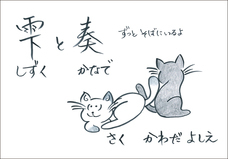 雫と奏
しずく かなで
ずっと そばにいるよ
さく かわだ よしえ